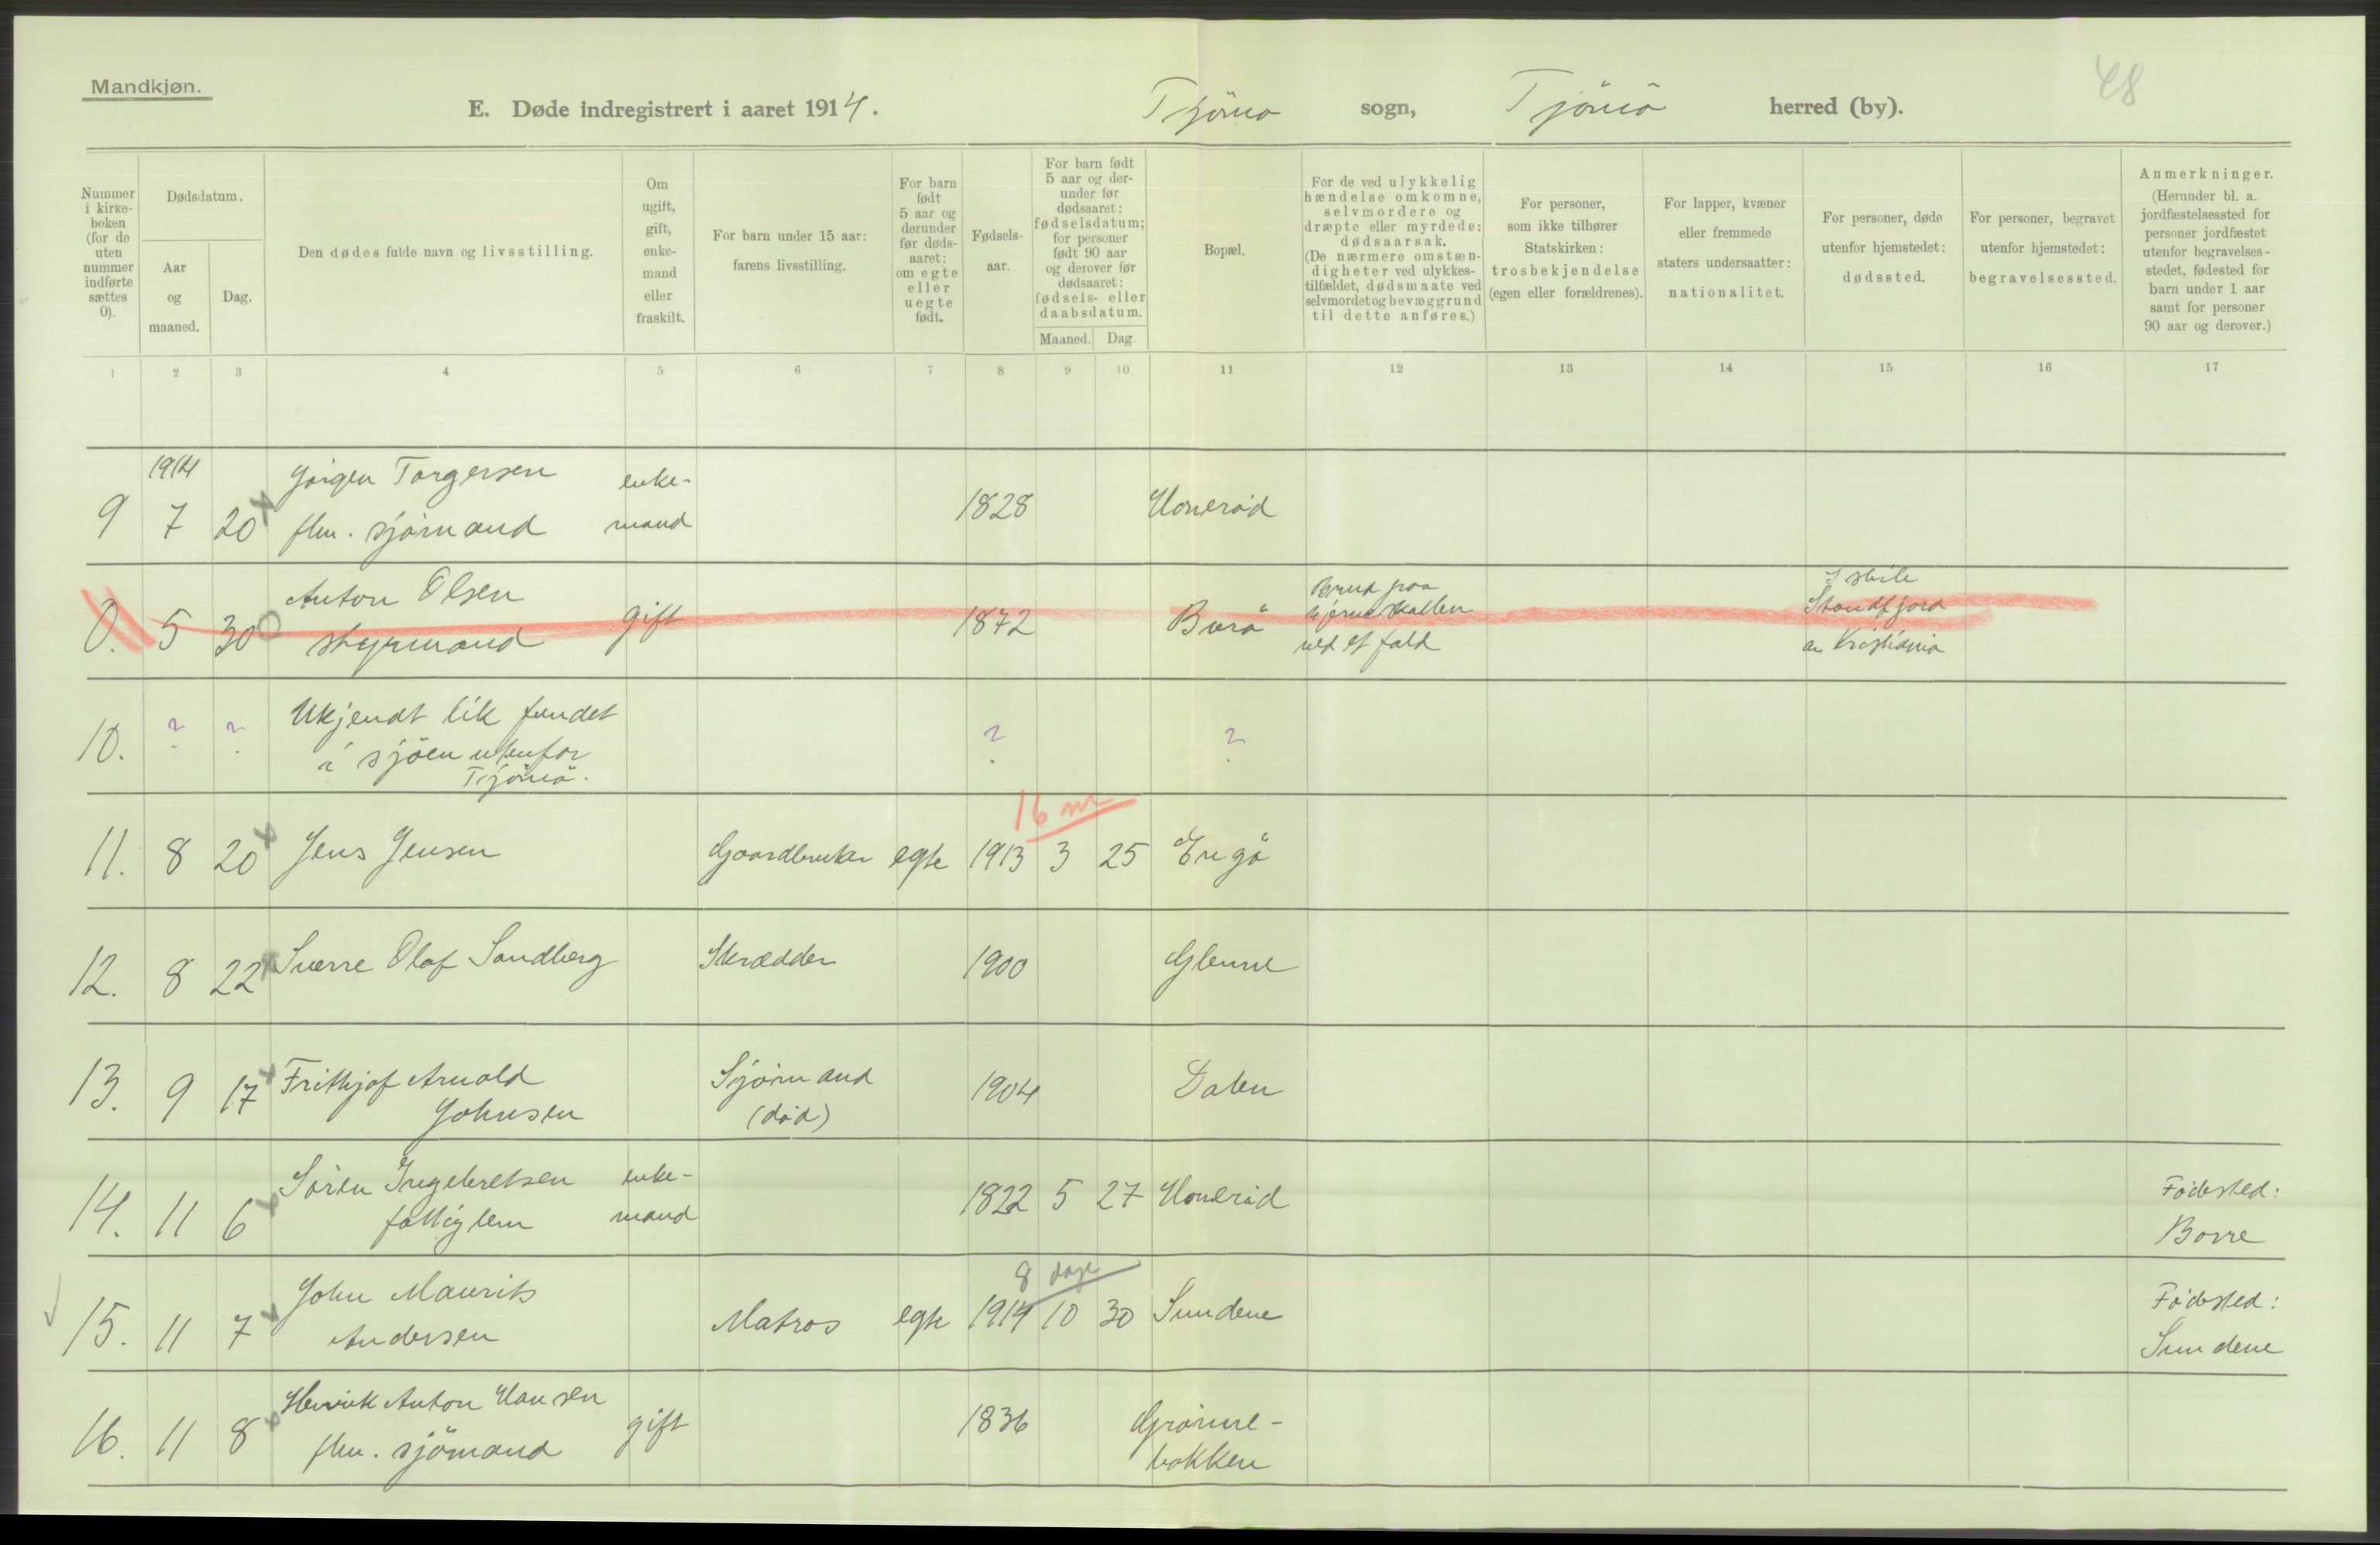 Mandkjøn.
48
E. Døde indregistrert i aaret 1914. Tjömö sogn, Tjömö herred (by).
Nummer
i kirke-
boken
(for de
uten
nummer
indførte
sættes
0).
Dødsdatum.
Aar
og
maaned.
Dag.
Den dødes fulde navn og livsstilling.
Om
ugift,
gift,
enke-
mand
eller
fraskilt.
For barn under 15 aar:
farens livsstilling.
For barn
født
5 aar og
derunder
før døds-
aaret:
om egte
eller
uegte
født.
Fødsels-
aar.
For barn født
5 aar og der-
under før
dødsaaret:
fødselsdatum;
for personer
født 90 aar
og derover før
dødsaaret:
fødsels- eller
daabsdatum.
Maaned. Dag.
Bopæl.
For de ved ulykkelig
hændelse omkomne,
selvmordere og
dræpte eller myrdede:
dødsaarsak.
(De nærmere omstæn-
digheter ved ulykkes-
tilfældet, dødsmaate ved
selvmordet og bevæggrund
til dette anføres.)
For personer,
som ikke tilhører
Statskirken:
trosbekjendelse
(egen eller forældrenes).
For lapper, kvæner
eller fremmede
staters undersaatter:
nationalitet.
For personer, døde
utenfor hjemstedet:
dødssted.
For personer, begravet
utenfor hjemstedet:
begravelsessted.
Anmerkninger.
(Herunder bl. a.
jordfæstelsessted for
personer jordfæstet
utenfor begravelses-
stedet, fødested for
barn under 1 aar
samt for personer
90 aar og derover.)
1 2 3 4 5 6 7 8 9 10 11 12 13 14 15 16 17
1914 Jörgen Torgersen enke-
9 7 20 fhv. sjömand mand 1828 Honeröd
Anton Olsen
0. 5 30 styrmand gift 1872 Burö
Brud paa
hjerneskallen
ved et fald
I skib
Stordfjord
av Kristiania
10. ? ? Ukjendt lik fundet ? ?
i sjöen utenfor
Tjömö.
16 m
11. 8 20 Jens Jensen Gaardbruker egte 1913 3 25 Engö
12. 8 22 Sverre Olaf Sandberg Skrædder 1900 Glenne
13. 9 17 Frithjof Arnold Sjömand 1904 Dalen
Johnsen (död)
14. 11 6 Sören Ingebretsen enke- 1822 5 27 Honeröd Födested:
fattiglem mand Borre
8 dage
15. 11 7 John Maurits Matros egte 1914 10 30 Sundene Födested:
Andersen Sundene
16. 11 8 Henrik Anton Hansen gift 1836 Grönne-
fhv. sjömand bakken